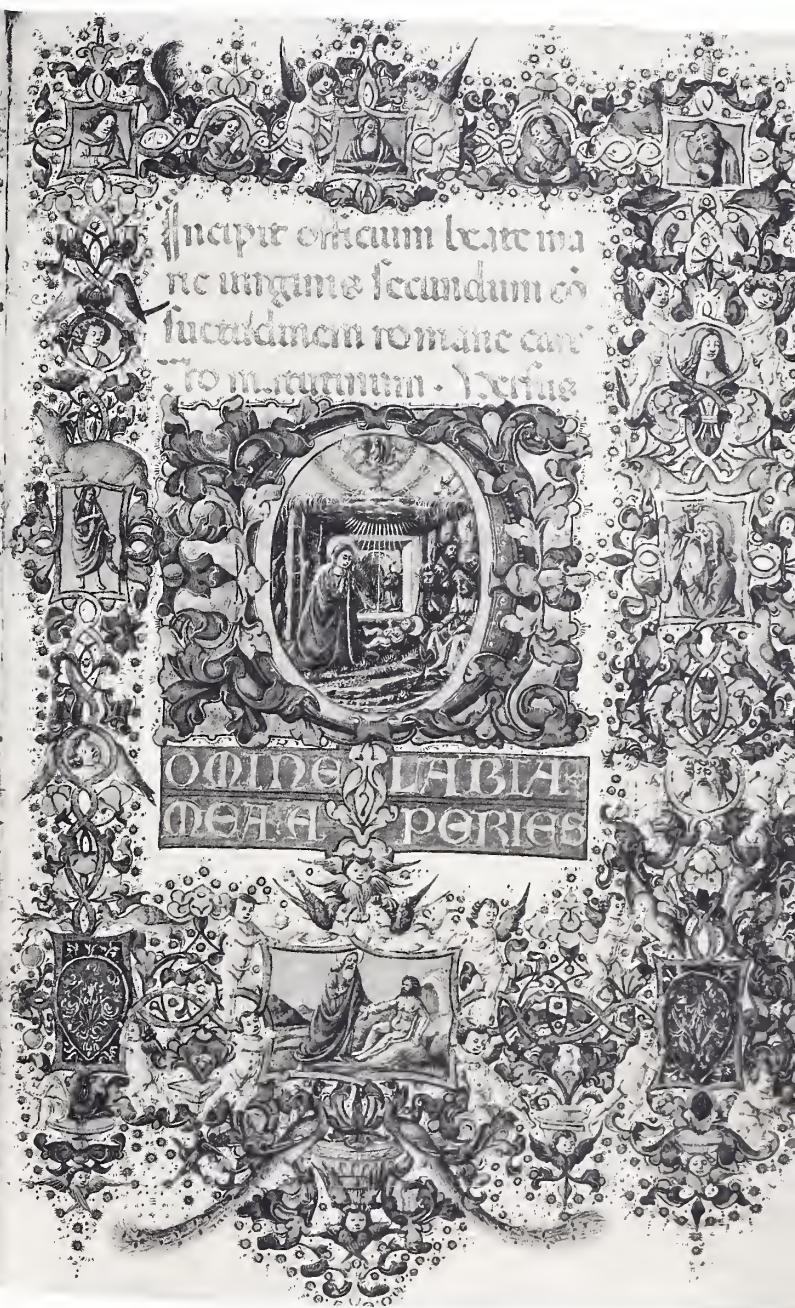 Incipit officium beate ma
rie uirginis secundum cō
suetudinem romane curie
ro matutinum. Versus
OMINE LABIA
MEA A PERIES